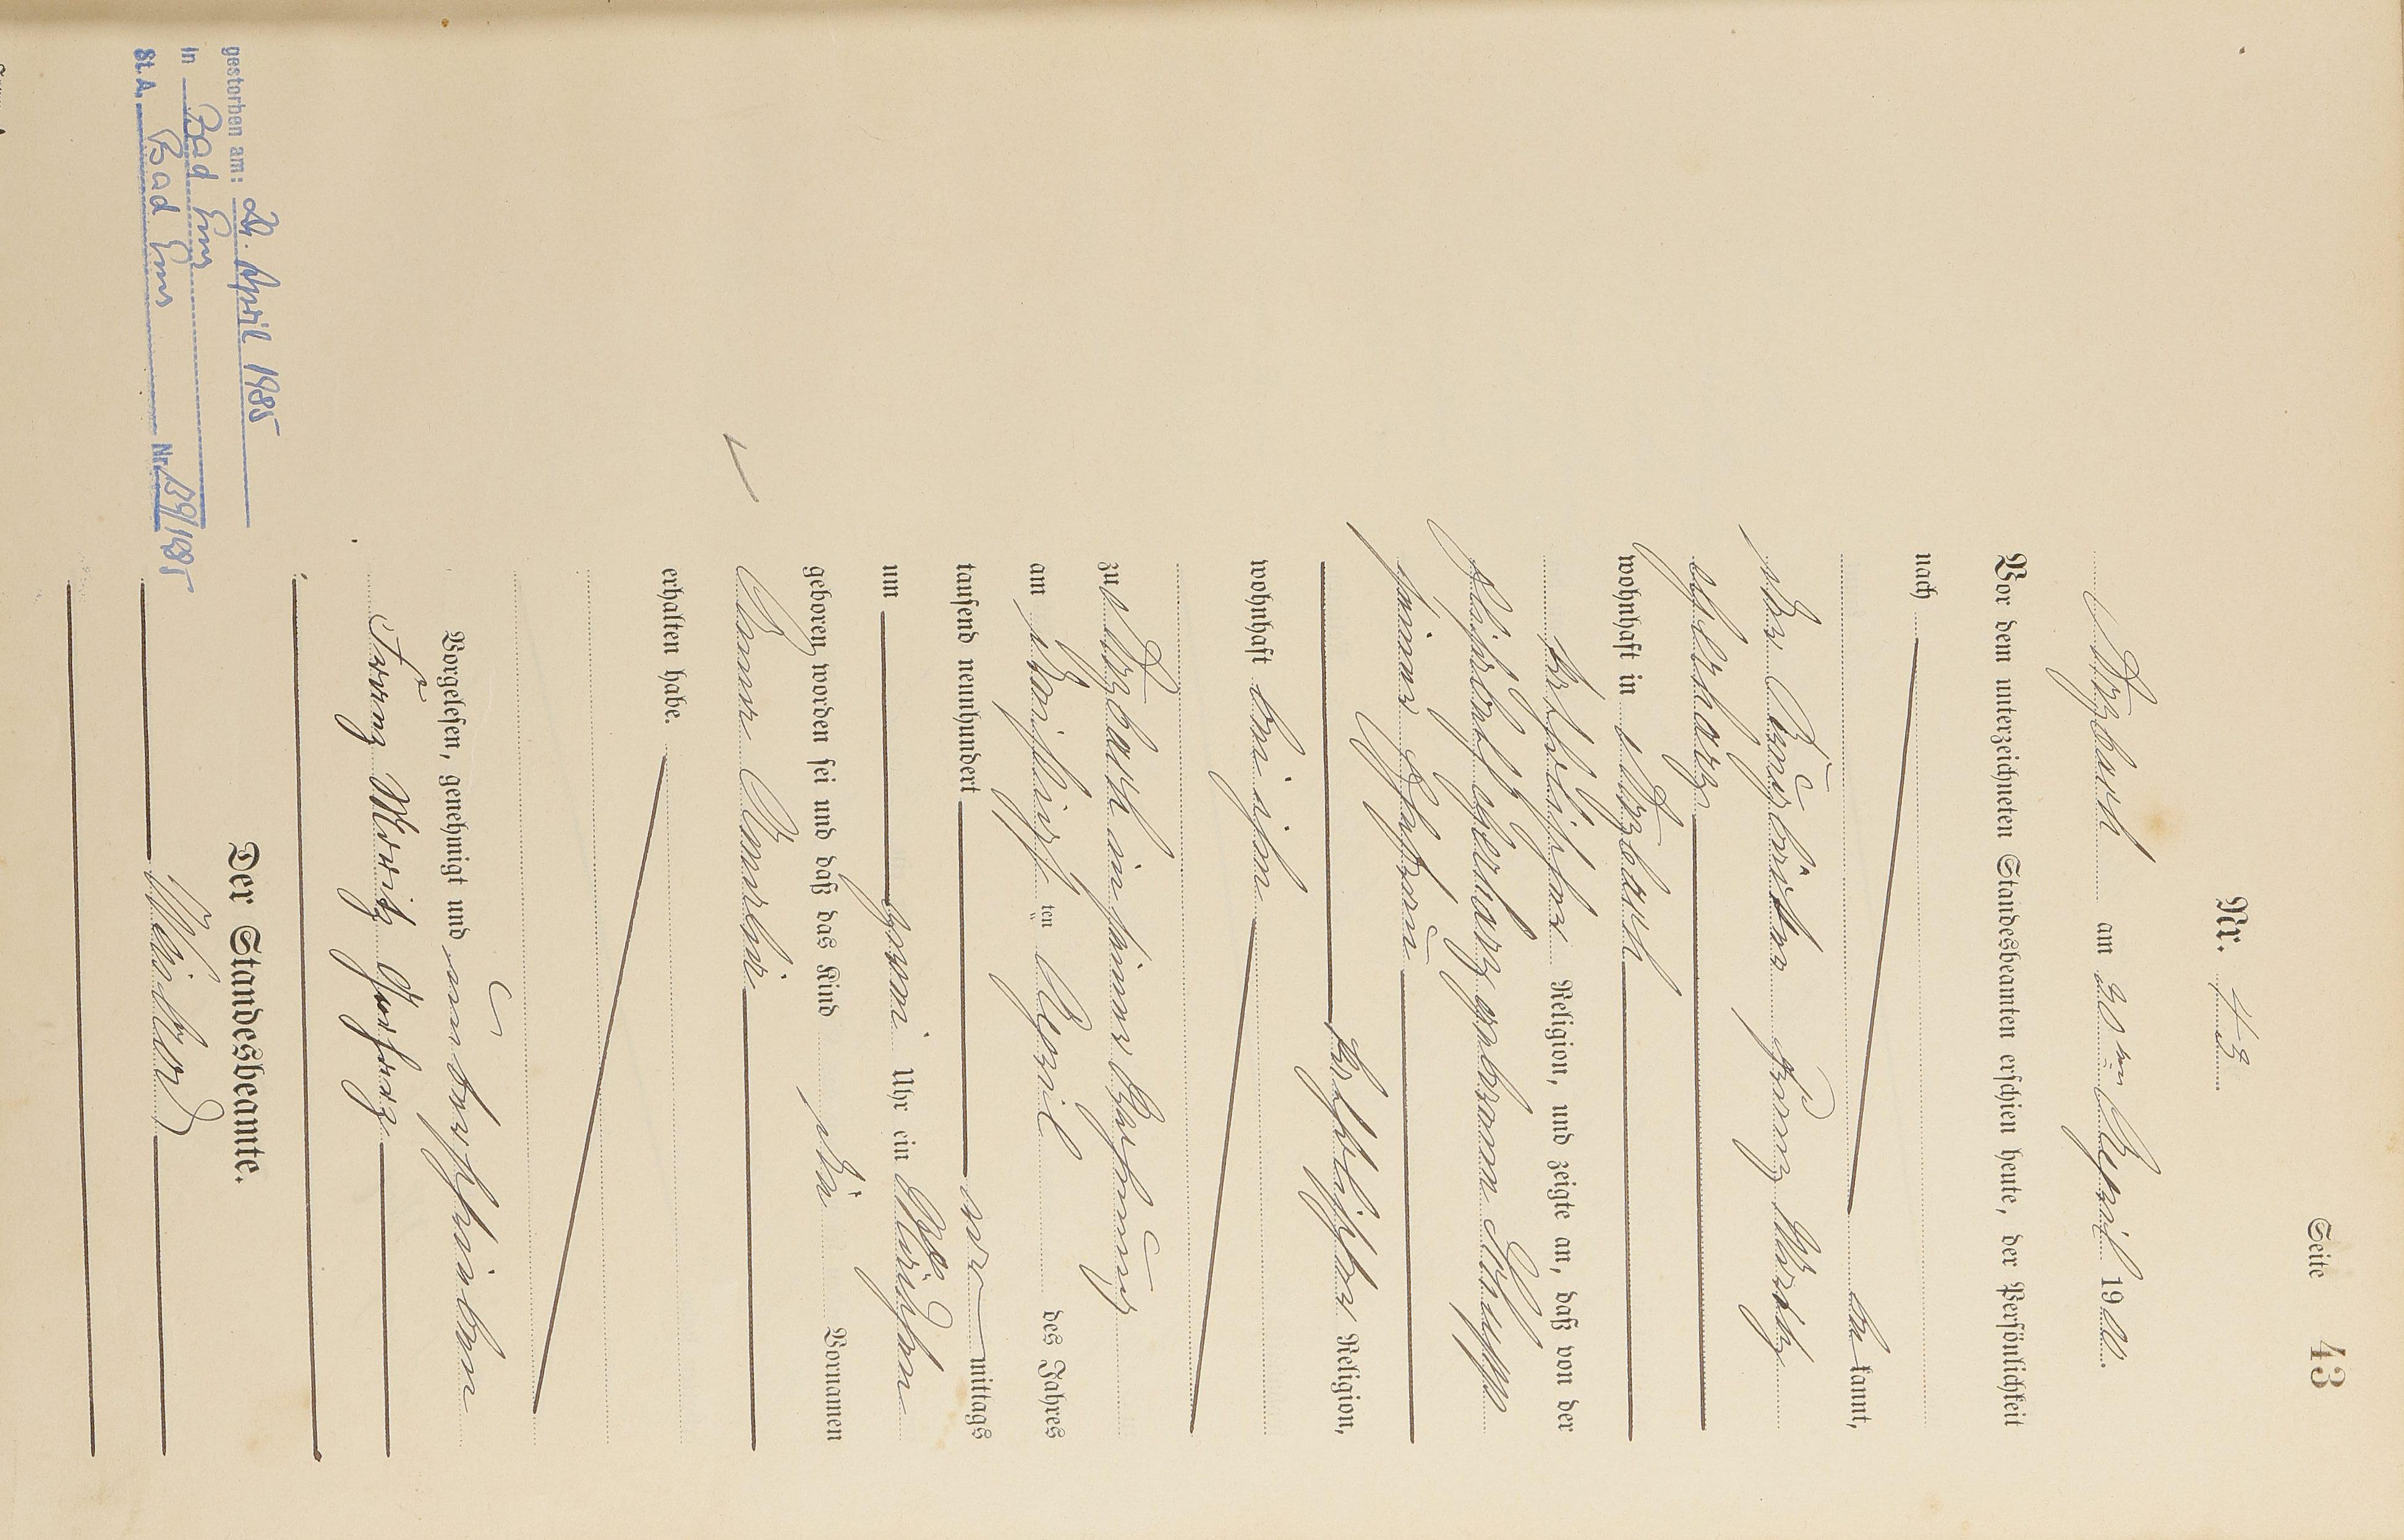 Seite 43
Nr. 43
Arzbach am 30ten April 1900.
Vor dem unterzeichneten Standesbeamten erschien heute, der Persönlichkeit
nach
be kannt,
der Franz Moritz
Gerharz
wohnhaft in Arzbach
katholischer Religion, und zeigte an, daß von der
Elisabeth Gerharz geborenen Schupp
seiner Ehefrau
katholischer Religion,
wohnhaft bei ihm
zu Arzbach in seiner Behausung
am ten April des Jahres
tausend neunhundert vor mittags
um zwei Uhr ein Mädchen
geboren worden sei und daß das Kind die Vornamen
Anna
erhalten habe.
Vorgelesen, genehmigt und unterschrieben
Franz Moritz Gerharz
Der Standesbeamte.
gestorben am: April 1985
in Bad Ems
St. A. Bad Ems Nr. 139/1985